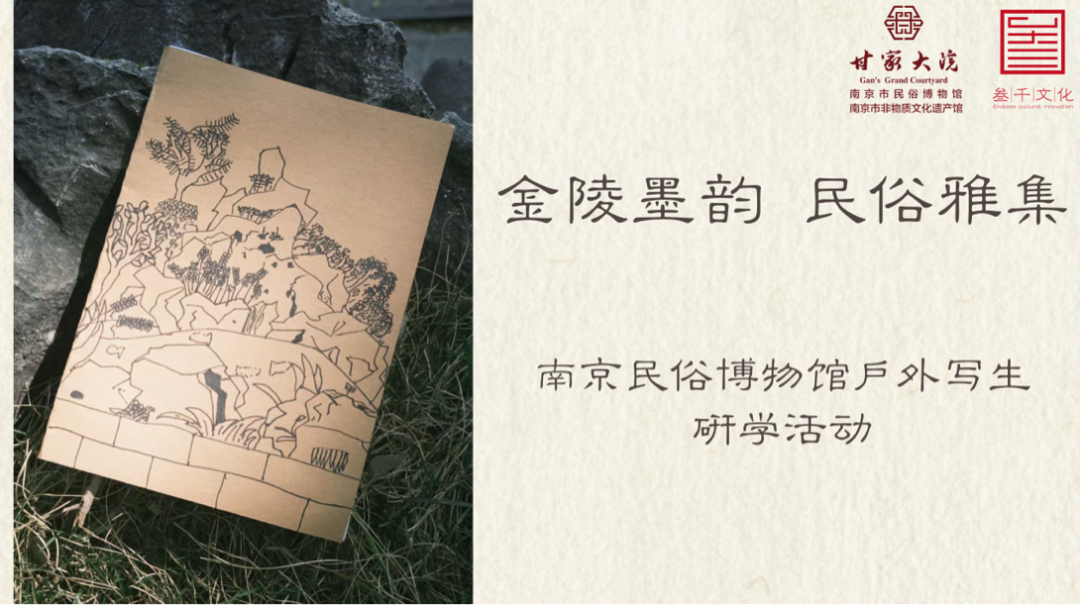 甘家大院
Gan's Grand Courtyard
南京市民俗博物馆
南京市非物质文化遗产馆
叁千文化
Endless cultural innovation
金陵墨韵 民俗雅集
南京民俗博物馆戶外写生
研学活动